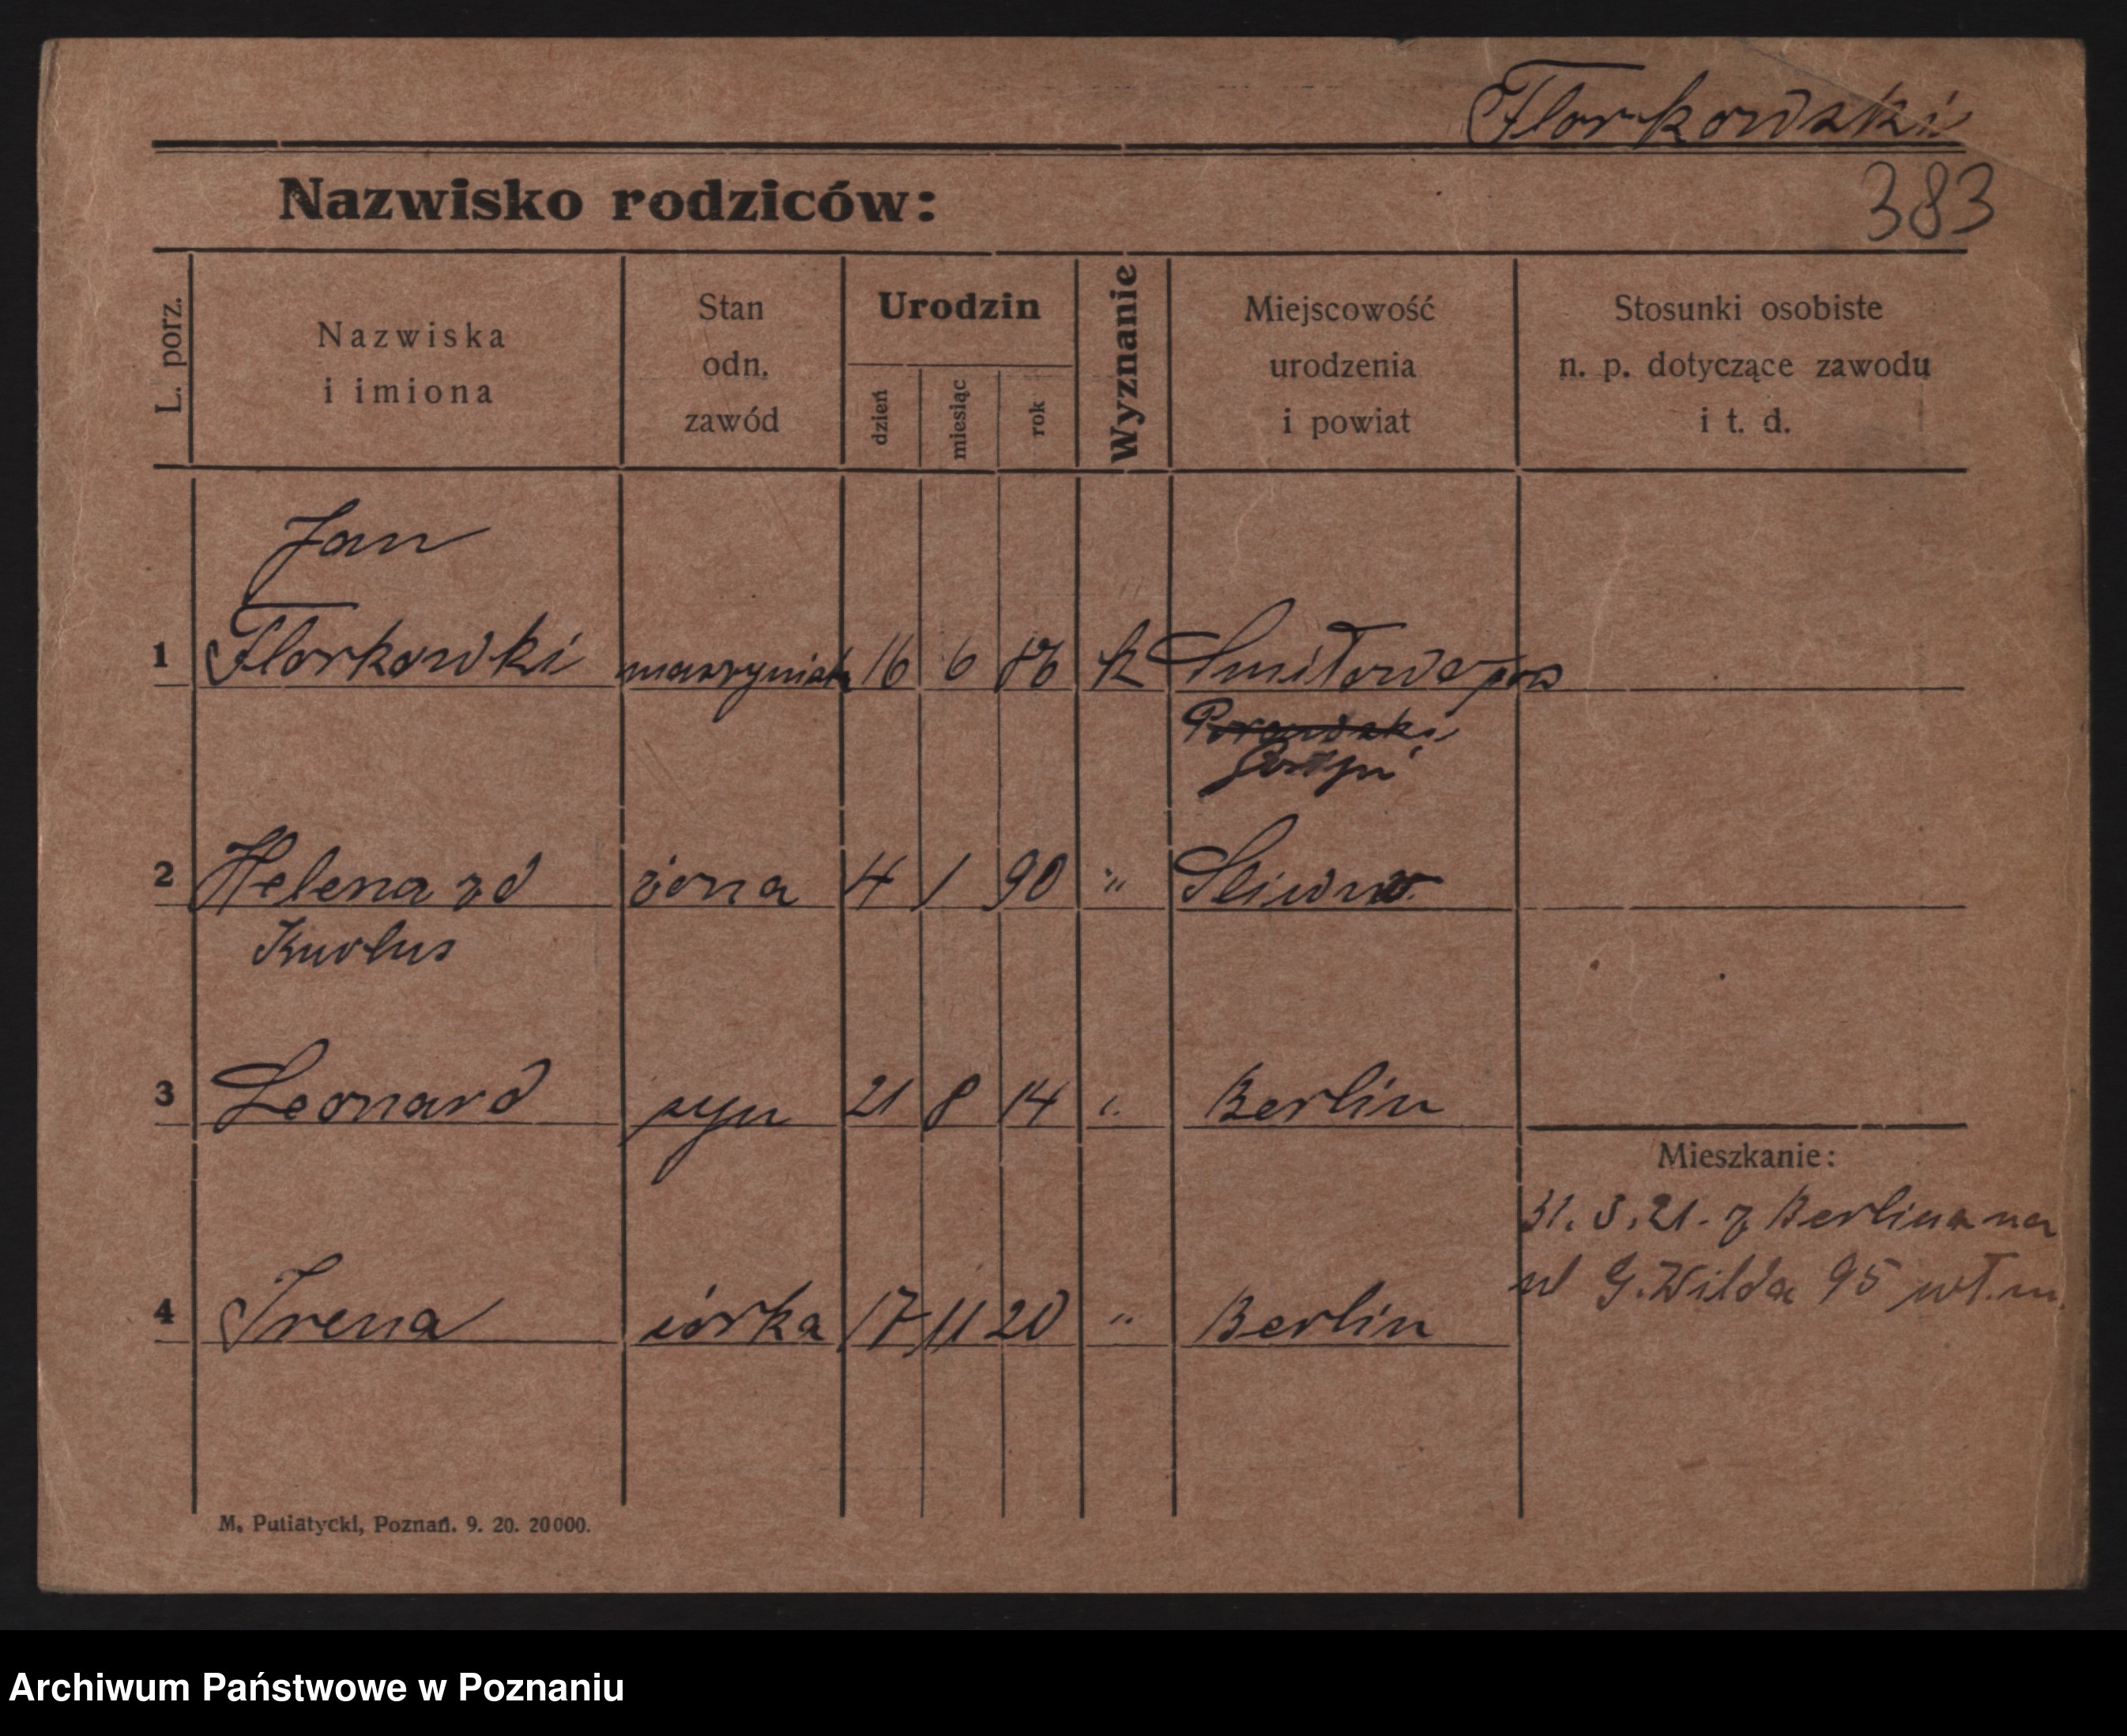 Florkowski
Nazwisko rodziców:
383
L. porz.
Nazwiska
i imiona
Stan
odn.
zawód
Urodzin
dzień
miesiąc
rok
Wyznanie
Miejscowość
urodzenia
i powiat
Stosunki osobiste
n. p. dotyczące zawodu
i t. d.
Jan
1 Florkowki 16 6 86 k Smiłowo pow
Gostyń
2 Helena zd żona 4 1 90 " Sliwno
3 Leonard syn 21 8 14 " Berlin
Mieszkanie:
31. 3. 21. z Berlina na
4 Irena córka 17 11 20 " Berlin
ul G. Wilda 95 wł. m.
M. Putiatycki, Poznań. 9. 20. 20000.
Archiwum Państwowe w Poznaniu